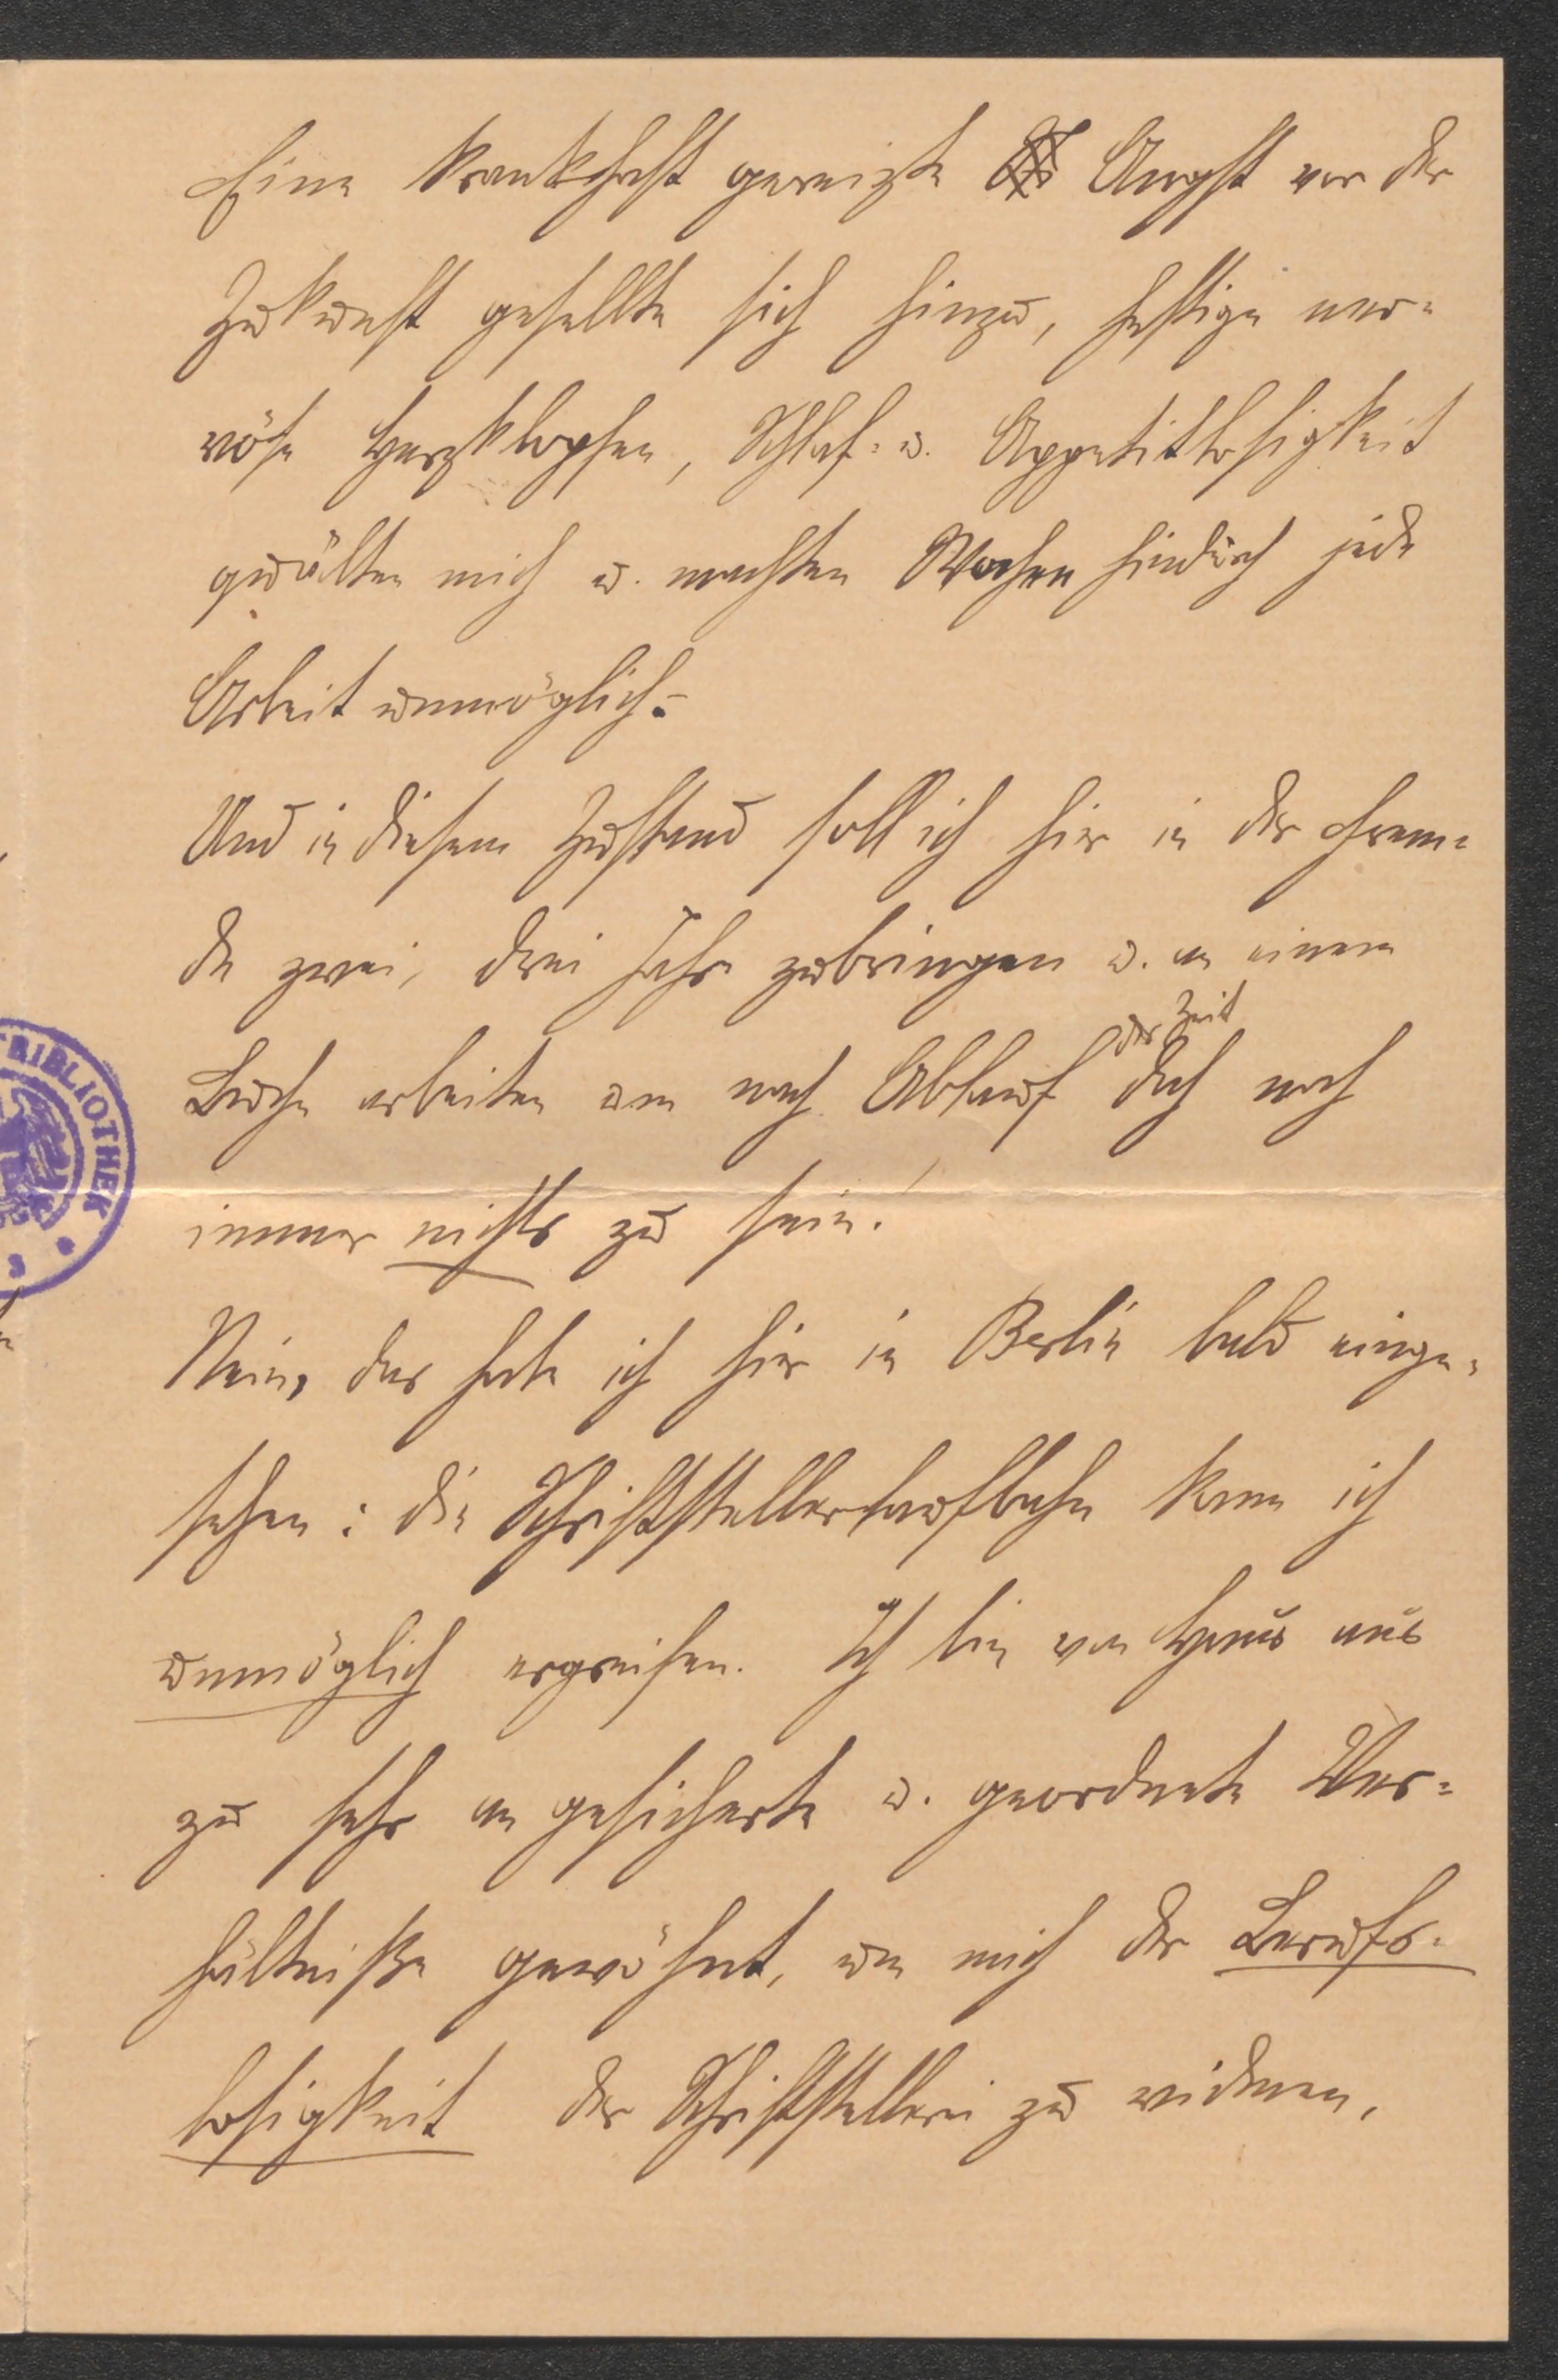 Eine krankhaft gereizte Angst vor der
Zukunft gesellte sich hinzu, heftige ner-
vöse Herzklopfen, Schlaf- u. Appetitlosigkeit
quälten mich u. machten Wochen hindurch jede
Arbeit unmöglich.-
Und in diesem Zustand soll ich hier in der Frem-
de zwei, drei Jahre zubringen u. an einem
der Zeit
Buche arbeiten um nach Ablauf doch noch
immer nichts zu sein!
Nein, das habe ich hier in Berlin bald einge-
sehen: die Schriftstellerlaufbahn kann ich
unmöglich ergreifen. Ich bin von Haus aus
zu sehr an gesicherte u. geordnete Ver-
hältniße gewöhnt, um mich der Berufs-
losigkeit der Schriftstellerei zu widmen,
BIBLIOTHEK